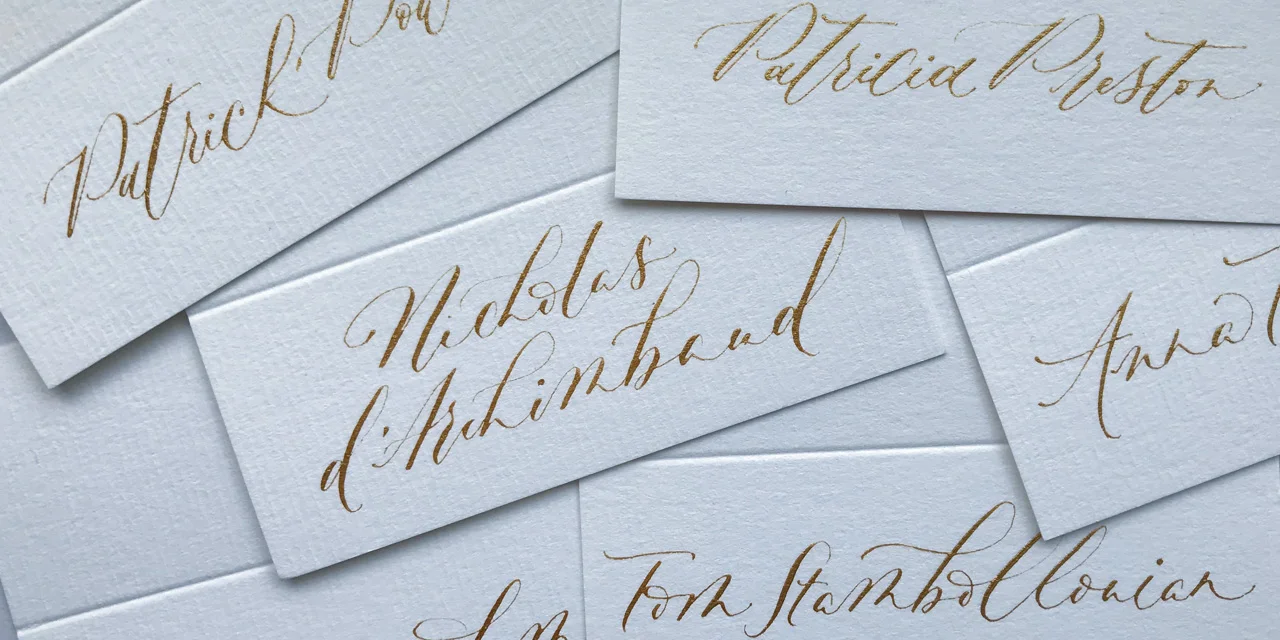 Patrick
Patricia Preston
Nicholas
d'Archimbaud
Anna
Tom Stambollouian